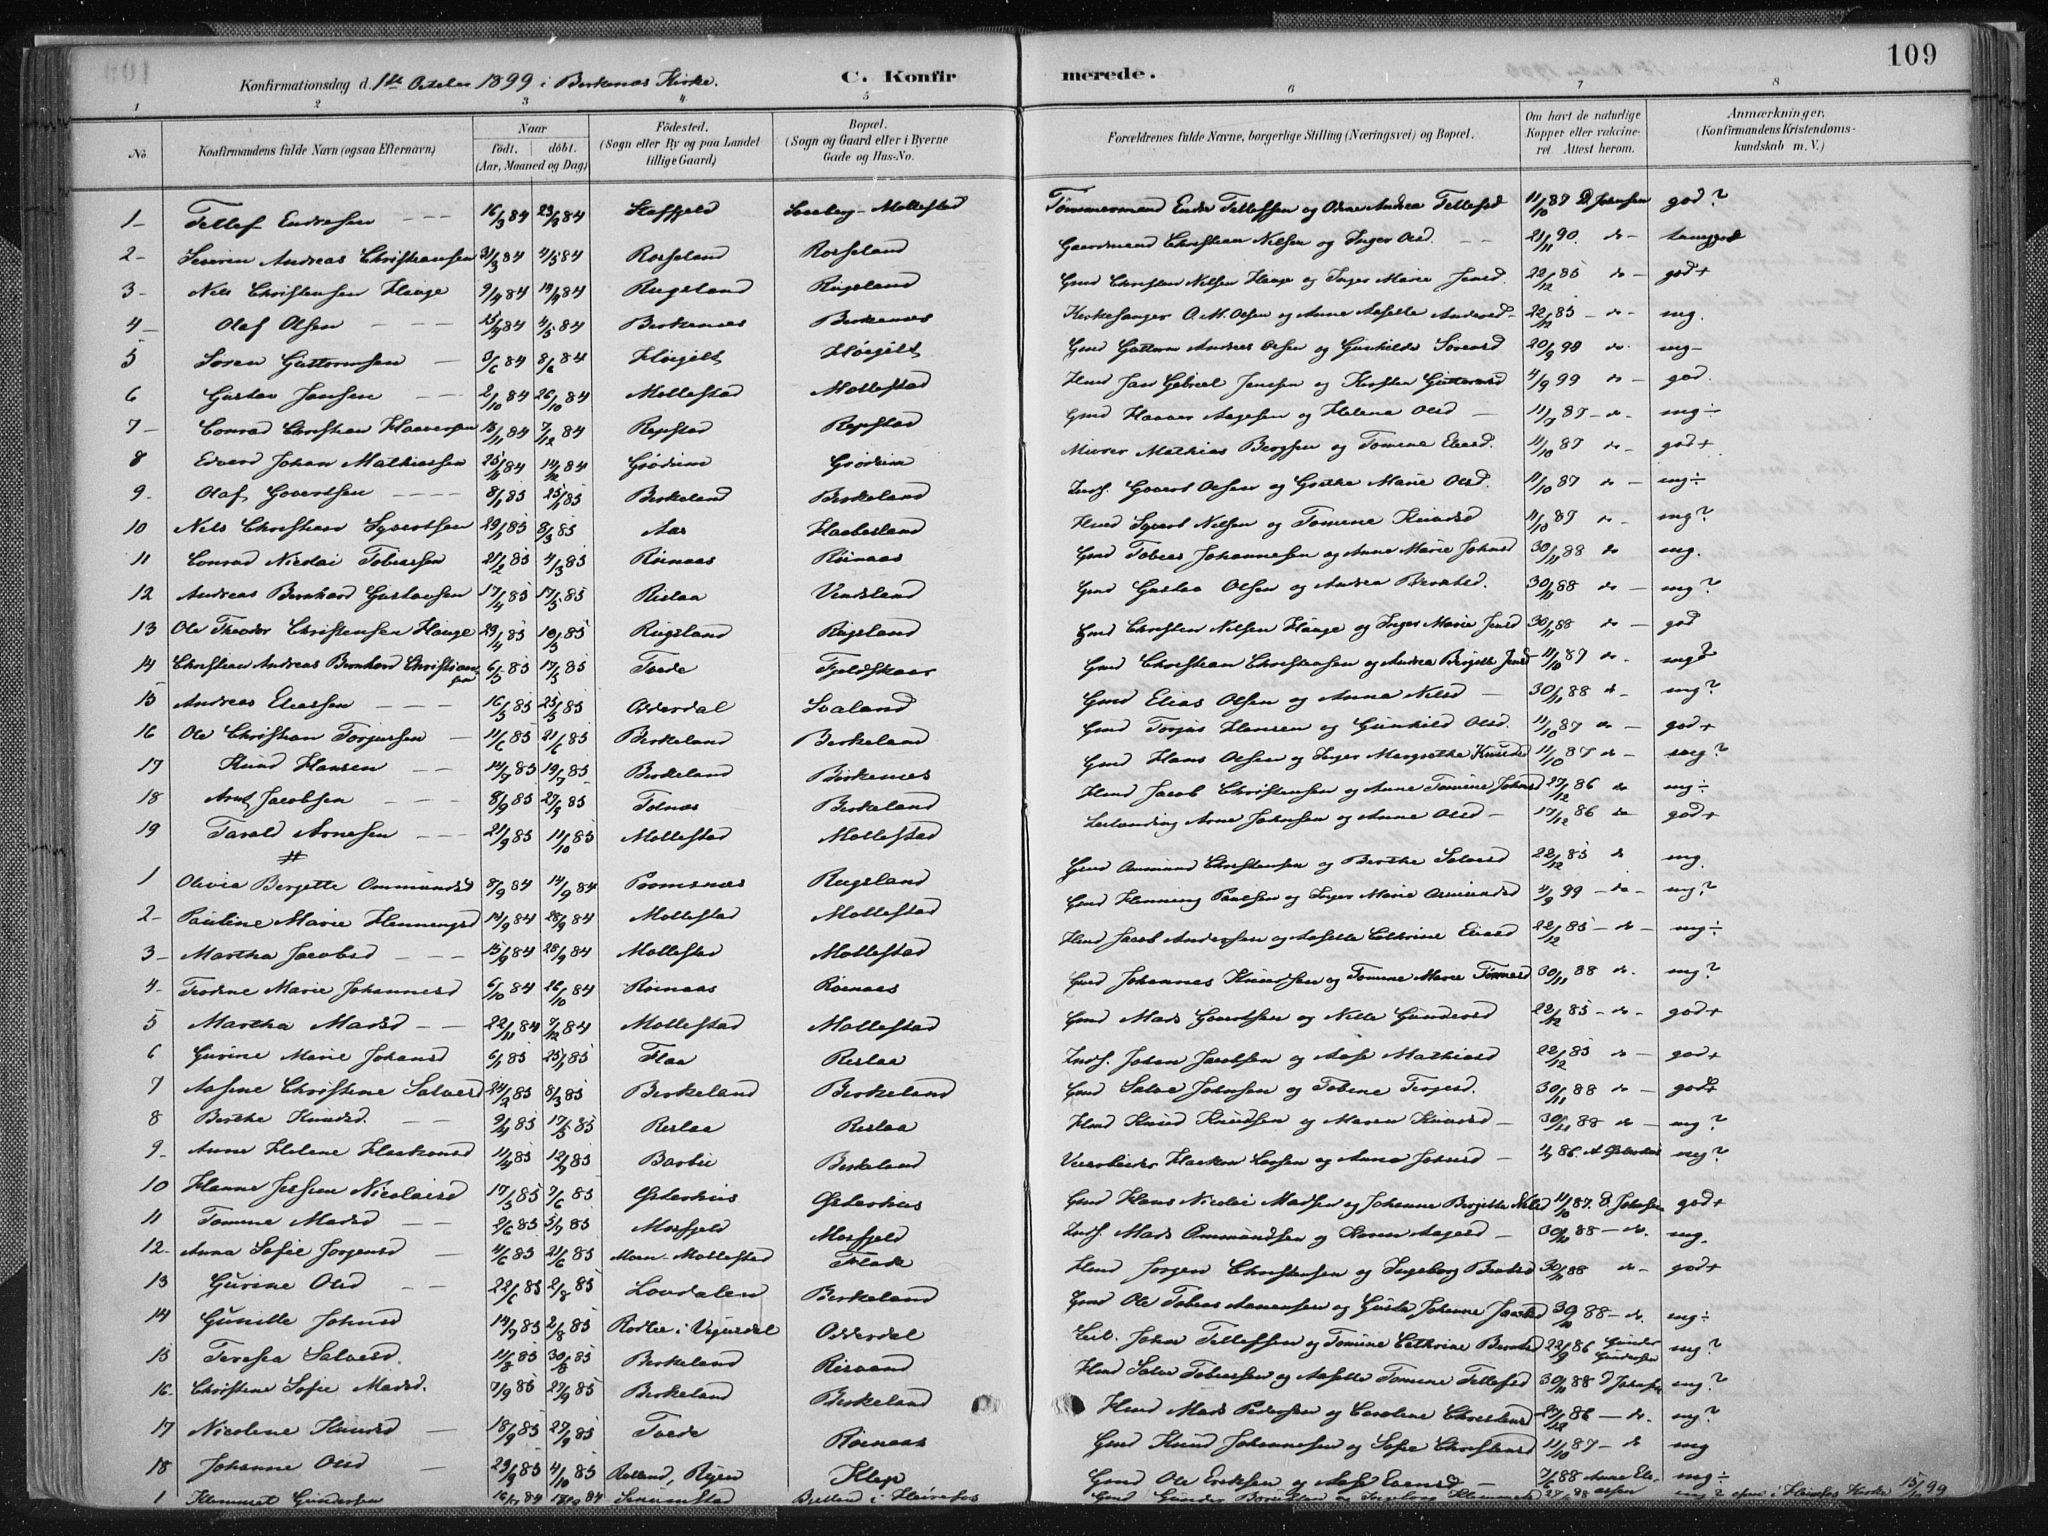 109
Konfirmationsdag d. 1ste October 1899 i Berkenæs Kirke. C. Konfirmerede.
1 2 3 4 5 6 7 8
No Konfirmandens fulde Navn (ogsaa Efternavn) Naar födt. döbt. (Aar, Maaned og Dag) Födested. (Sogn eller By og paa Landet tillige Gaard) Bopæl. (Sogn og Gaard eller i Byerne Gade og Hus-No. Forældrenes fulde Navne, borgerlige Stilling (Næringsvei) og Bopæl. Om havt de naturlige Kopper eller vakcineret. Attest herom. Anmærkninger, (Konfirmandens Kristendomskundskab m. V.)
1 Tellef Endresen 16/3 84 23/3 84 Stoffjeld Mollestad Tømmermand Endre Tellefsen og Andrea Tellefsd 11/10 87 D. Johnsen god ?
2 Severin Andreas Christiansen 31/3 84 4/5 84 Rosseland Rosseland Gaardmand Christian Nilsen og Inger Olsd. 21/11 90 do
3 Nils Christensen Hauge 9/9 84 19/9 84 Rugsland Rugsland Gmd Christen Nilsen Hauge og Inger Marie Jensd. 22/12 85 do god+
4 Olaf Olsen 4/5 84 Berkenæs Berkenæs Kirkesanger O. M. Olsen og Anne Aaselle Andersd 22/12 85 do mg.
5 Soren Guttormsen 8/6 84 Høegilt Høegilt Gmd Guttorm Andreas Olsen og Gunhilde Sorensd 20/9 99 do mg
6 Gustav Jansen 2/10 84 26/10 84 Mollestad Mollestad Hmd Jan Gabriel Jensen og Kirsten Guttormsd 4/9 99 do god.
7 Conrad Christian Haaversen 15/11 84 7/12 84 Repstad Repstad Gmd Haaver Aagesen og Helena Olsd 11/7 87 do mg÷
8 Edvard Johan Mathiassen 14/12 84 Grødem Grødem Murer Mathias Bergsen og Tomine Eliasd. 11/10 87 do god+
9 Olaf Govertsen 8/1 85 25/1 85 Berkeland Berkeland Inds. Govert Olsen og Grethe Marie Olsd. 11/10 87 do mg÷
10 Nils Christian Syvertsen 29/1 85 8/3 85 Aas Haabesland Hmd Syvert Nilsen og Tomine Knudsd 11/10 87 do mg?
11 Conrad Nicolai Tobiassen 21/2 85 4/3 85 Roinaas Roinaas Gmd Tobias Johannesen og Anne Marie Johnsd 30/11 88 do mg.
12 Andreas Bernhard Gustavsen 17/4 85 17/5 85 Rislaa Vindsland Gmd Gustav Olsen og Andrea Berntsd. 30/11 88 do mg?
13 Ole Theodor Christensen Hauge 29/4 85 10/5 85 Rugsland Rugsland Gmd Christen Nilsen Hauge og Inger Marie Jensd 30/11 88 do god
14 Christian Andreas Bernhard Christiansen 6/5 85 17/5 85 Tvede Fjeldskaar Gmd Christian Christensen og Andrea Bergitte Jensd 11/10 87 do mg?
15 Andreas Eliassen 16/5 85 25/5 85 Odderdal Svaland Gmd Elias Olsen og Anna Nilsd 30/11 88 do mg?
16 Ole Christian Torjussen 11/6 85 21/6 85 Berkeland Berkeland Gmd Torjus Hansen og Gunhild Olsd. 11/10 87 do god+
17 Knud Hansen 14/7 85 19/7 85 Berkeland Berkenæs Gmd Hans Olsen og Inger Margrethe Knudsd 11/10 87 do mg?
18 Arnt Jacobsen 8/9 85 27/9 85 Tolnæs Berkeland Hmd Jacob Christensen og Anne Tomine Johnsd 27/12 86 do mg÷
19 Tarald Arnesen 21/9 85 11/10 85 Mollestad Mollestad Arne Johnsen og Anne Olsd 17/12 86 do god+
1 Olivia Bergitte Ommundsd 8/9 84 14/9 84 Rugsland Gmd Ommund Christensen og Berthe Salvesd 22/12 85 do mg.
2 Pauline Marie Henningsd 14/9 84 28/9 84 Mollestad Mollestad Gmd Henning Paulsen og Inger Marie Osmundsd 4/9 99 do mg?
3 Martha Jacobsd 15/9 84 28/9 84 Mollestad Mollestad Hmd Jacob Andersen og Aaselle Cathrine Eliasd 22/12 85 do mg÷
4 Marie Johannesd 6/10 84 26/10 84 Roinaas Roinaas Gmd Johannes Knudsen og Tomine Marie Tønnesd 30/11 88 do mg?
5 Martha Madsd 22/11 84 7/12 84 Mollestad Mollestad Gmd Mads Govertsen og Nille Gundersd 22/12 85 do god+
6 Gurine Marie Johansd 6/1 85 25/1 85 Flaa Rislaa Inds. Johan Jacobsen og Aase Mathiasd 22/12 85 do god+
7 Aasine Christine Salvesd 24/2 85 8/3 85 Berkeland Berkeland Gmd Salve Johnsen og Tobine Terjesd. 30/11 88 do god+
8 Berthe Knudsd. 9/4 85 17/5 85 Rislaa Rislaa Hmd Knud Knudsen og Maren Knudsd 30/11 88 do mg?
9 Anne Helene Haakonsd 11/4 85 12/7 85 Barbu Berkeland Haakon Larsen og Anna Johnsd 86. mg?
10 Hanne Jessine Nicolaisd 17/5 85 7/6 85 Østerhus Østerhus Gmd Hans Nicolai Madsen og Johanne Bergitte Nilsd 11/10 87. D. Johnsen god+
11 Tomine Madsd 2/6 85 5/7 85 Mosfjeld Mosfjeld Inds. Mads Ommundsen og Karen Aagesd 30/11 88 do. mg.
12 Anna Sofie Jorgensd 4/6 85 21/6 85 Moen - Mollestad Flade Hmd Jorgen Christensen og Ingeborg Berntsd 30/11 88 do god+
13 Gurine Olsd 22/6 85 2/8 85 Lovdalen Berkeland Gmd Ole Tobias Aanensen og Gusta Johanne Jacobsd 30/11 88 do mg÷
14 Gunille Johnsd 14/7 85 2/8 85 Odderdal John Tellefsen og Tomine Cathrine Berntsd 22/9 86 Gunder Gundersen mg?
15 Teresea Salvesd. 11/8 85 30/8 85 Berkeland Risvand Hmd Salve Tobiassen og Aaselle Tomine Tellefsd 30/11 88 D Johnsen mg?
16 Christine Sofie Madsd. 7/9 85 27/9 85 Berkeland Berkeland Hmd Mads Pedersen og Caroline Christensd 27/12 86 do. mg?
17 Nicoline Knudsd 18/9 85 27/9 85 Tvede Roinaas Gmd Knud Johannesen og Sofie Christensd 11/10 87 do mg
18 Johanne Olsd 29/9 85 4/10 85 Klep Gmd Ole Eriksen og Aase Evensd 7/6 88 Anne Eliassen mg÷
1 Klemmet Gundersen 84 84 i Heirefos Gmd Gunder og Ingeborg 88 mg ? i Heirefos Kirke 15/10 99